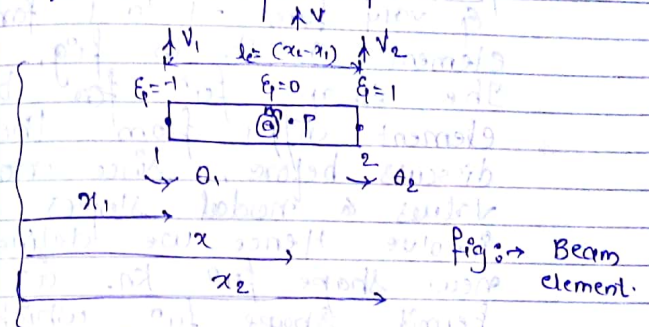 V
V₁ le = (x₂-x₁) V₂
ξp=-1 ξp=0 ξ=1
P
1 2
θ₁ θ₂
x₁
x
x₂
fig:→ Beam
element.